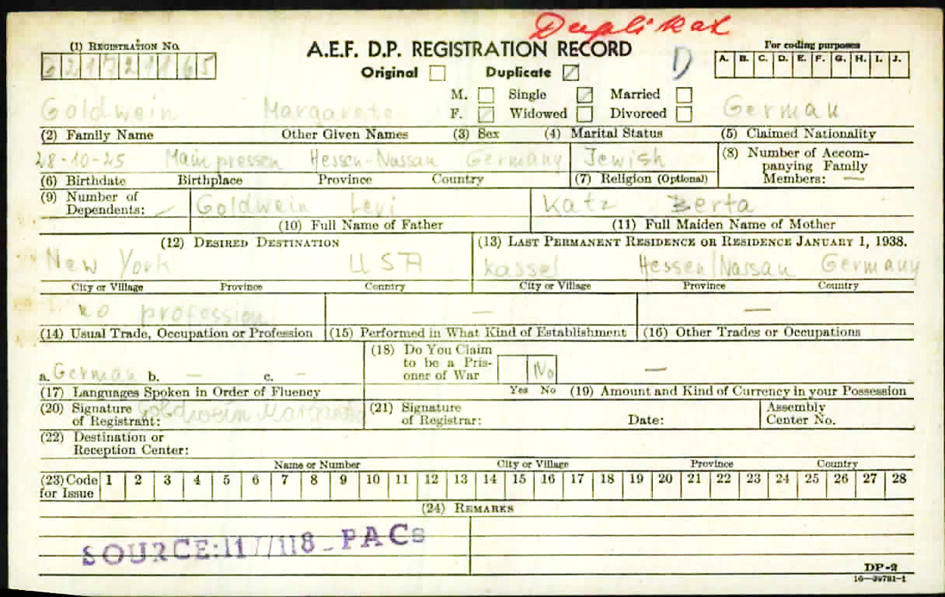 Duplikat
(1) REGISTRATION NO.
A.E.F. D.P. REGISTRATION RECORD
For coding purposes
Original Duplicate D
A. B. C. D. E. F. G. H. I. J.
M. Single Married
F. Widowed Divorced
Goldwein Margarete German
(2) Family Name Other Given Names (3) Sex (4) Marital Status (5) Claimed Nationality
28-10-25 Mainpressen Hessen-Nassau Germany Jewish
(8) Number of Accompanying Family Members: —
(6) Birthdate Birthplace Province Country (7) Religion (Optional)
(9) Number of Dependents: Goldwein Levi Katz Berta
(10) Full Name of Father (11) Full Maiden Name of Mother
(12) DESIRED DESTINATION (13) LAST PERMANENT RESIDENCE OR RESIDENCE JANUARY 1, 1938.
New York USA Kassel Hessen/Nassau Germany
City or Village Province Country City or Village Province Country
no profession — —
(14) Usual Trade, Occupation or Profession (15) Performed in What Kind of Establishment (16) Other Trades or Occupations
a. German b. — c. — (18) Do You Claim to be a Prisoner of War No —
(17) Languages Spoken in Order of Fluency Yes No (19) Amount and Kind of Currency in your Possession
(20) Signature of Registrant: Goldwein Margarete (21) Signature of Registrar: Date: Assembly Center No.
(22) Destination or Reception Center:
Name or Number City or Village Province Country
(23) Code for Issue 1 2 3 4 5 6 7 8 9 10 11 12 13 14 15 16 17 18 19 20 21 22 23 24 25 26 27 28
(24) REMARKS
SOURCE:117/118_PACs
DP-2
16—39781-1